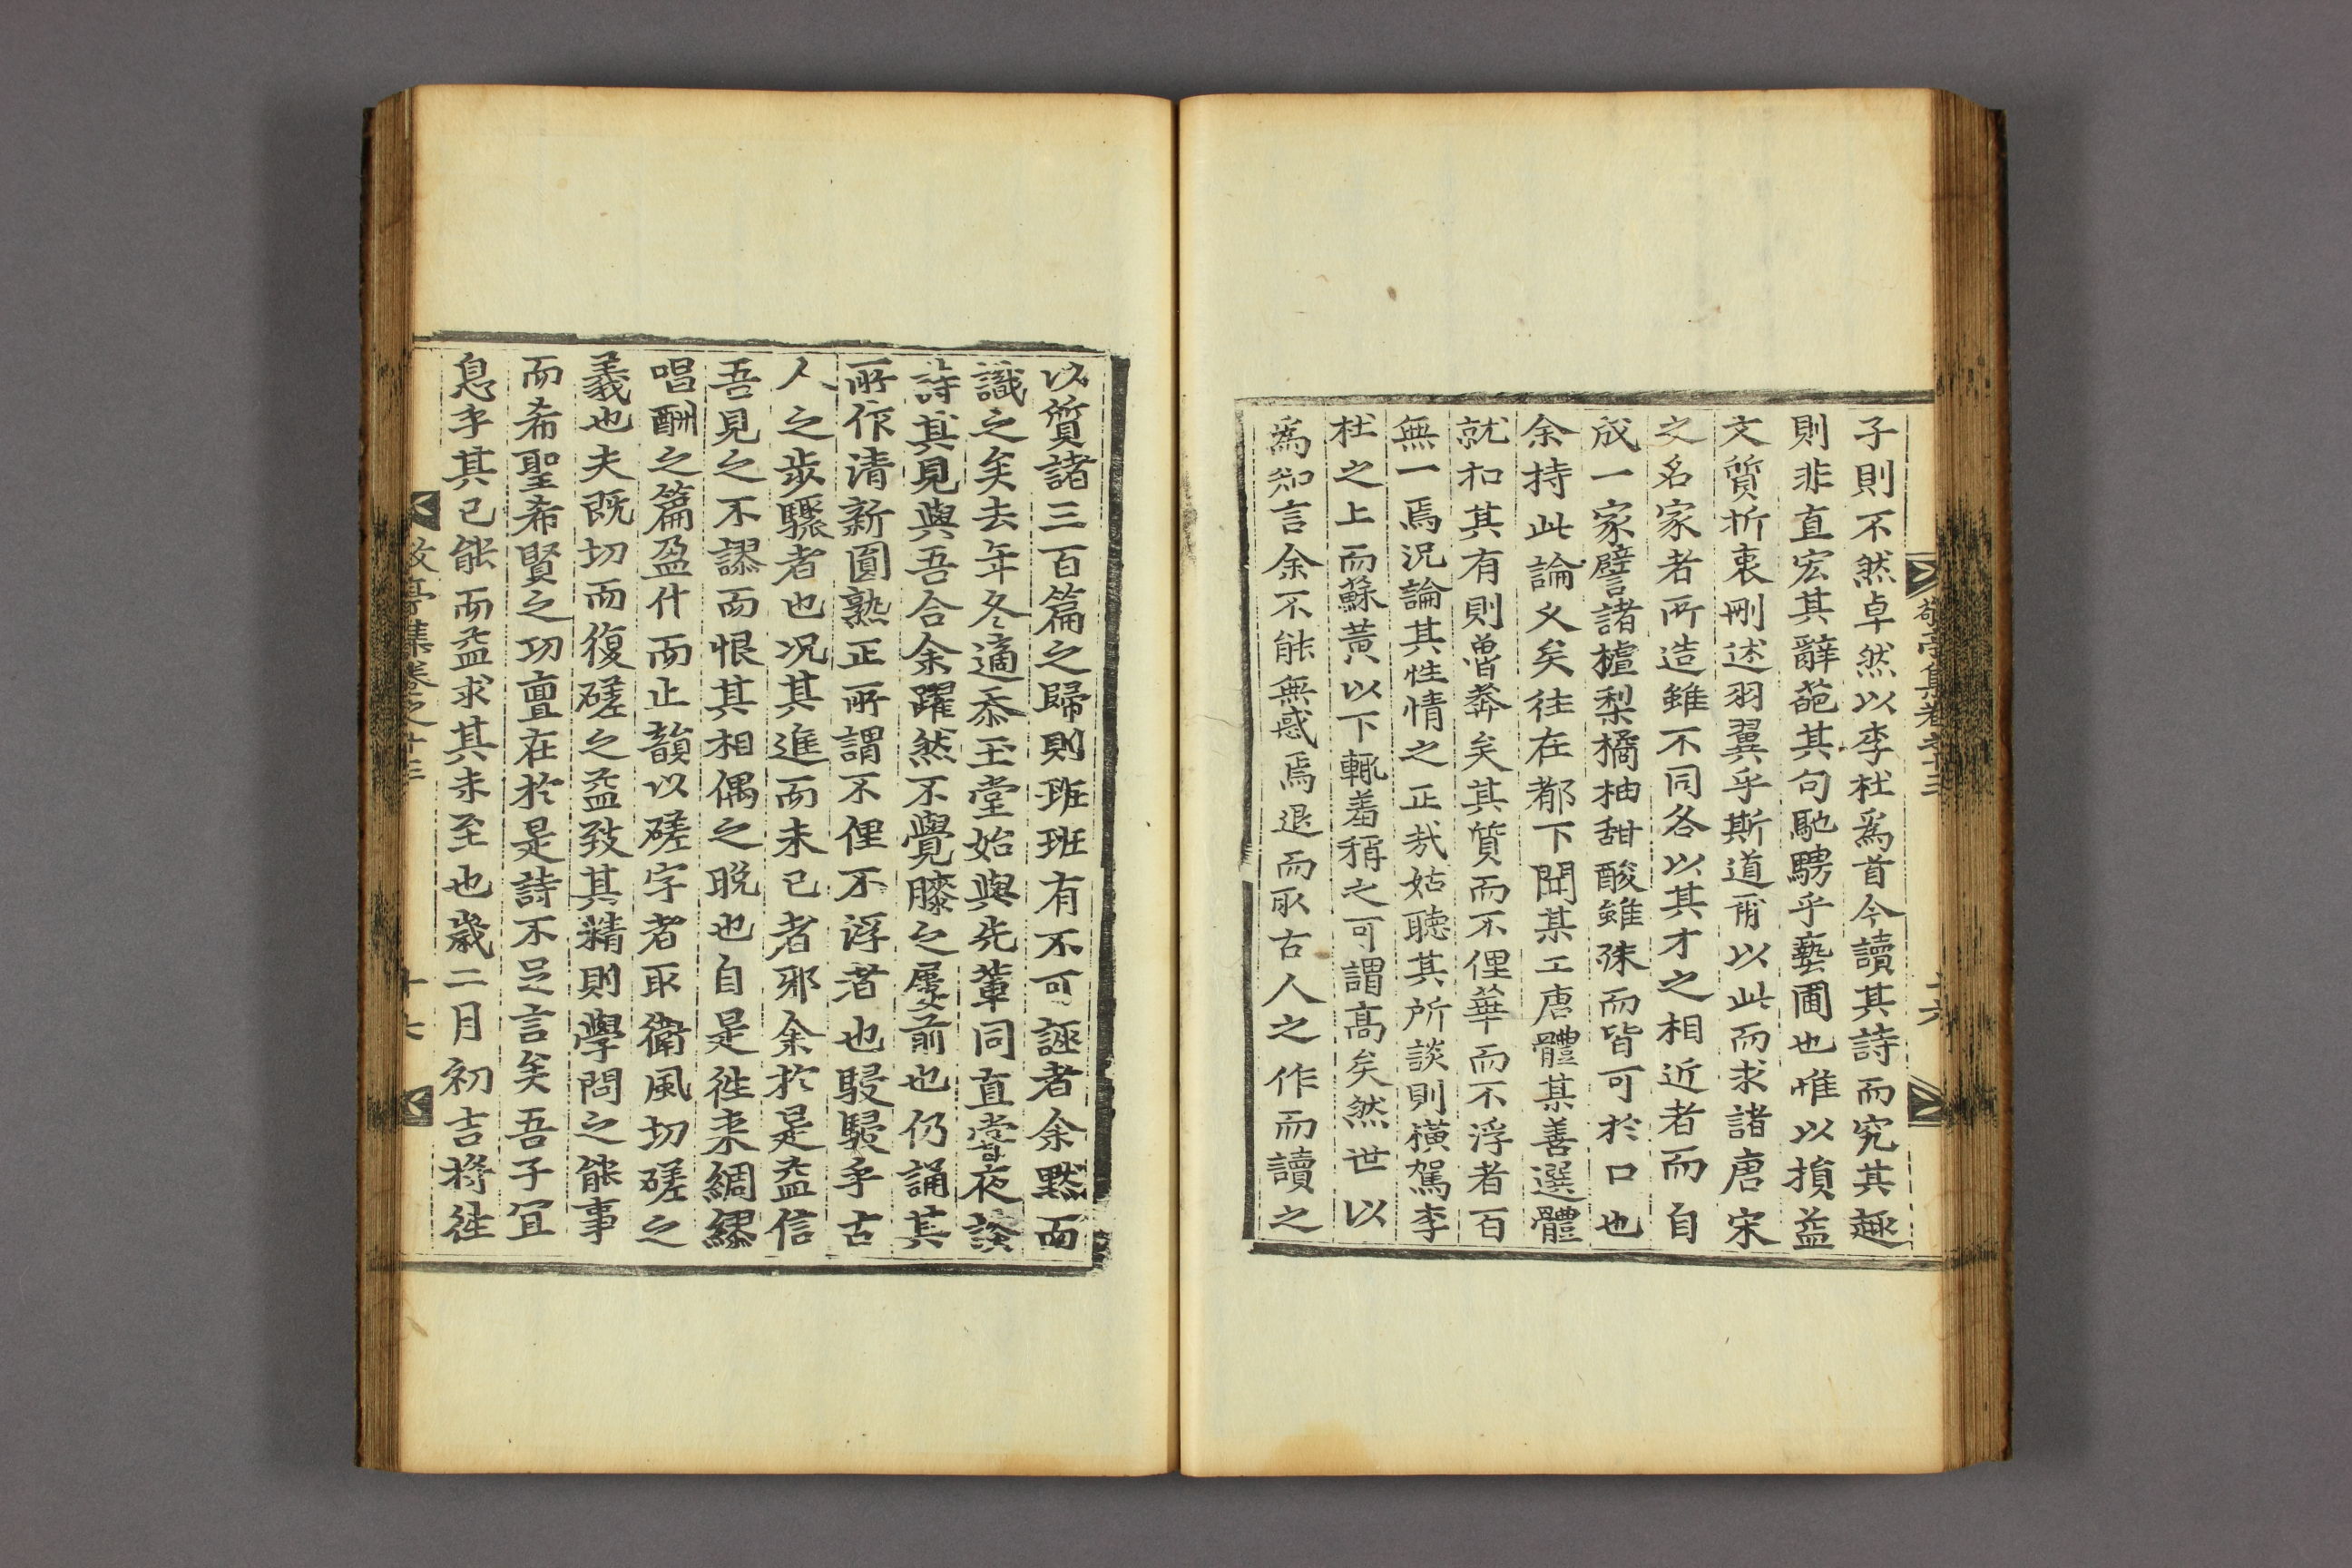 子則不然卓然以李杜爲首今讀其詩而究其趣
則非直宏其辭葩其句馳騁乎藝圃也惟以損益
文質折衷刪述羽翼乎斯道爾以此而求諸唐宋
之名家者所造雖不同各以其才之相近者而自
成一家譬諸樝梨橘柚甜酸雖殊而皆可於口也
余持此論久矣往在都下聞某工唐體某善選體
就扣其有則曾莽矣其質而不俚華而不浮者百
無一焉況論其性情之正哉姑聽其所談則橫駕李
杜之上而蘇黃以下輒羞稱之可謂高矣然世以
爲知言余不能無惑焉退而取古人之作而讀之
敬亭集卷之十三
十六
以質諸三百篇之歸則班班有不可誣者余黙而
識之矣去年冬適忝玉堂始與先輩同直嘗夜談
詩其見與吾合余躍然不覺膝之屢前也仍誦其
所作清新圓熟正所謂不俚不浮者也駸駸乎古
人之步驟者也况其進而未已者邪余於是益信
吾見之不謬而恨其相偶之晩也自是徃来綢繆
唱酬之篇盈什而止韻以磋字者取衛風切磋之
義也夫既切而復磋之益致其精則學問之能事
而希聖希賢之功亶在於是詩不足言矣吾子冝
息乎其已能而益求其未至也歲二月初吉將徃
敬亭集卷之十三
十七